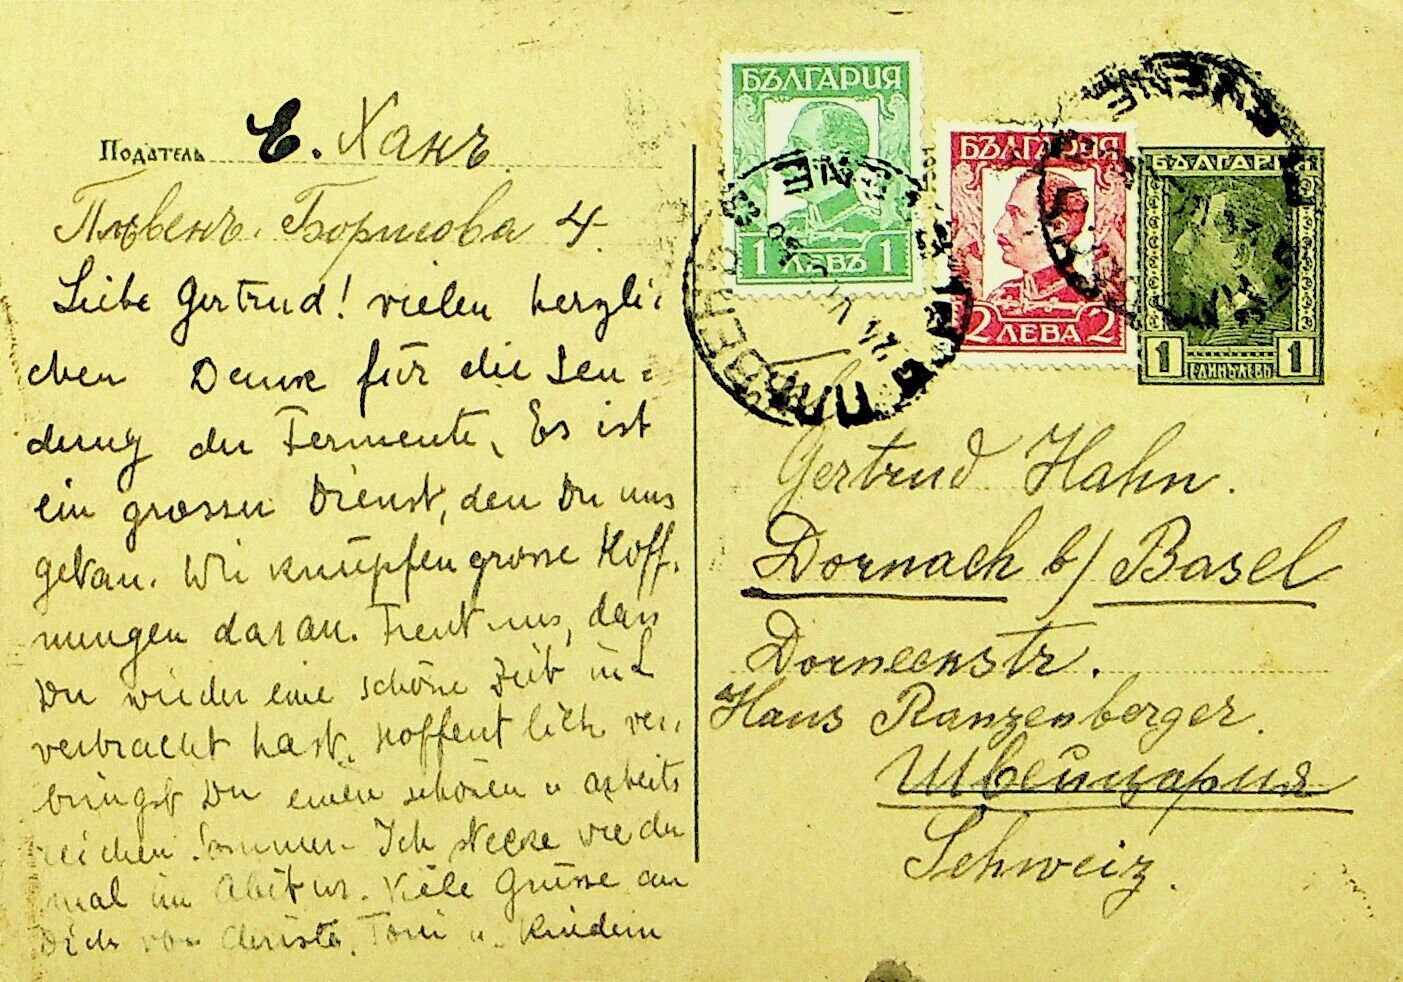 Податель Е. Ханъ
Плѣвенъ. Борисова 4.
Liebe Gertrud! vielen herzli-
chen Dank für die Sen-
dung der Fermente. Es ist
ein grosser Dienst, den Du uns
getan. Wir knüpfen grosse Hoff-
nungen daran. Freut uns, dass
Du wieder eine schöne Zeit
verbracht hast. Hoffentlich ver-
bringst Du einen schönen u arbeits
reichen Sommer. Ich stecke wieder
mal im Abitur. Viele Grüsse an
Dich von Christo, Toni u. Kindern
БЪЛГАРИЯ
1 ЛЕВЪ 1
БЪЛГАРИЯ
2 ЛЕВА 2
БЪЛГАРИЯ
1 ЕДИНЪ ЛЕВЪ 1
ПЛѢВЕНЪ
PLEVENE
Gertrud Hahn.
Dornach b/ Basel
Dorneckstr.
Haus Ranzenberger.
Швейцария
Schweiz.